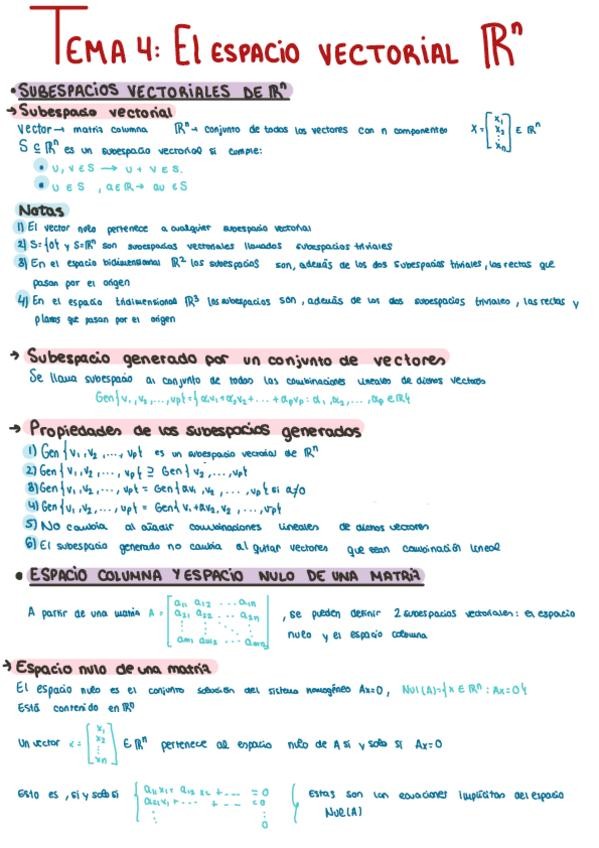 TEMA 4: El ESPACIO VECTORIAL ℝⁿ
• SUBESPACIOS VECTORIALES DE ℝⁿ
→ Subespacio vectorial
Vector → matriz columna ℝⁿ → conjunto de todos los vectores con n componentes x = [x₁ x₂ ⋮ xn] ∈ ℝⁿ
S ⊆ ℝⁿ es un subespacio vectorial si cumple:
• u, v ∈ S → u + v ∈ S.
• u ∈ S, a ∈ ℝ → au ∈ S
Notas
1) El vector nulo pertenece a cualquier subespacio vectorial
2) S={0} y S=ℝⁿ son subespacios vectoriales llamados subespacios triviales
3) En el espacio bidimensional ℝ² los subespacios son, además de los dos subespacios triviales, las rectas que
pasan por el origen
4) En el espacio tridimensional ℝ³ los subespacios son, además de los dos subespacios triviales, las rectas y
planos que pasan por el origen
→ Subespacio generado por un conjunto de vectores
Se llama subespacio al conjunto de todas las combinaciones lineales de dichos vectores
Gen{v₁, v₂, ..., vp} = {α₁v₁ + α₂v₂ + ... + αpvp : α₁, α₂, ..., αp ∈ ℝ}
→ Propiedades de los subespacios generados
1) Gen{v₁, v₂, ..., vp} es un subespacio vectorial de ℝⁿ
2) Gen{v₁, v₂, ..., vp} ⊇ Gen{v₂, ..., vp}
3) Gen{v₁, v₂, ..., vp} = Gen{av₁, v₂, ..., vp} si a≠0
4) Gen{v₁, v₂, ..., vp} = Gen{v₁+av₂, v₂, ..., vp}
5) No cambia al añadir combinaciones lineales de dichos vectores
6) El subespacio generado no cambia al quitar vectores que sean combinación lineal
• ESPACIO COLUMNA Y ESPACIO NULO DE UNA MATRIZ
A partir de una matriz A = [a₁₁ a₁₂ ... a₁n a₂₁ a₂₂ ... a₂n ⋮ am₁ am₂ ... amn], se pueden definir 2 subespacios vectoriales: el espacio
nulo y el espacio columna
→ Espacio nulo de una matriz
El espacio nulo es el conjunto solución del sistema homogéneo Ax=0, Nul(A)={x ∈ ℝⁿ : Ax=0}
Está contenido en ℝⁿ
Un vector x = [x₁ x₂ ⋮ xn] ∈ ℝⁿ pertenece al espacio nulo de A si y solo si Ax=0
Esto es, si y solo si {a₁₁x₁ + a₁₂x₂ + ... = 0 a₂₁x₁ + ... + ... = 0 ⋮ 0} Estas son las ecuaciones implícitas del espacio
Nul(A)